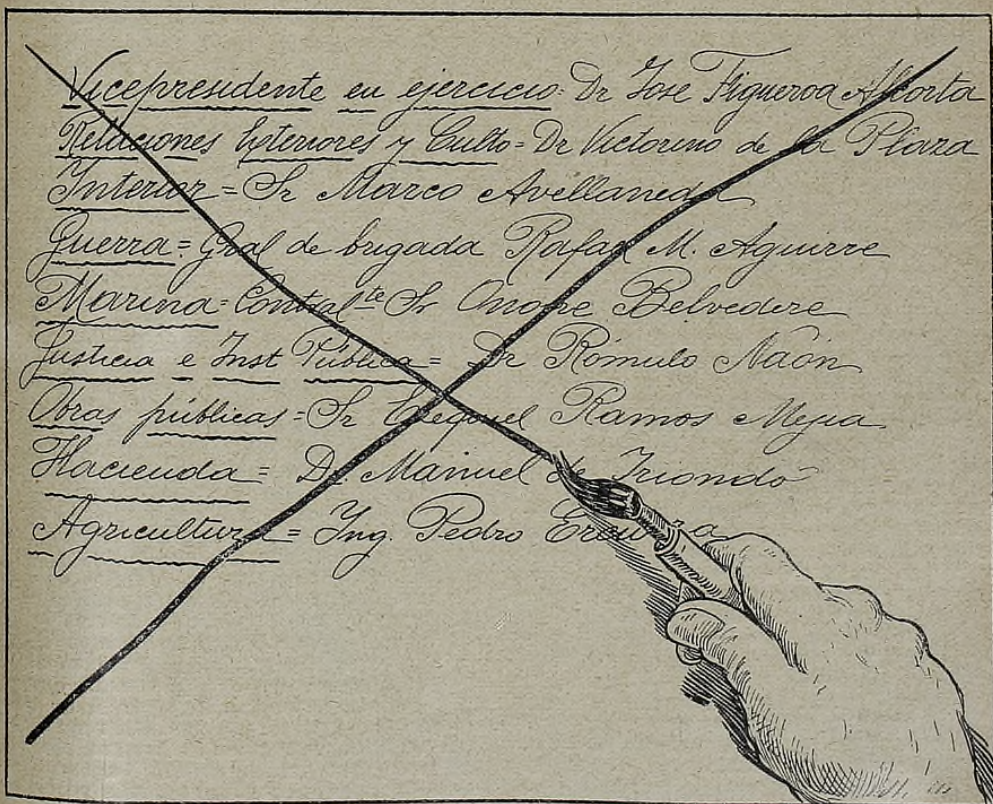 Vicepresidente en ejercicio: Dr José Figueroa Alcorta
Relaciones Exteriores y Culto = Dr Victorino de la Plaza
Interior = Sr Marco Avellaneda
Guerra = Gral de brigada Rafael M. Aguirre
Marina = Contral-te Sr Onofre Belvedere
Justicia e Inst Pública = Dr Rómulo Naón
Obras públicas = Sr Ezequiel Ramos Mejia
Hacienda = Dr. Manuel de Iriondo
Agricultura = Ing. Pedro